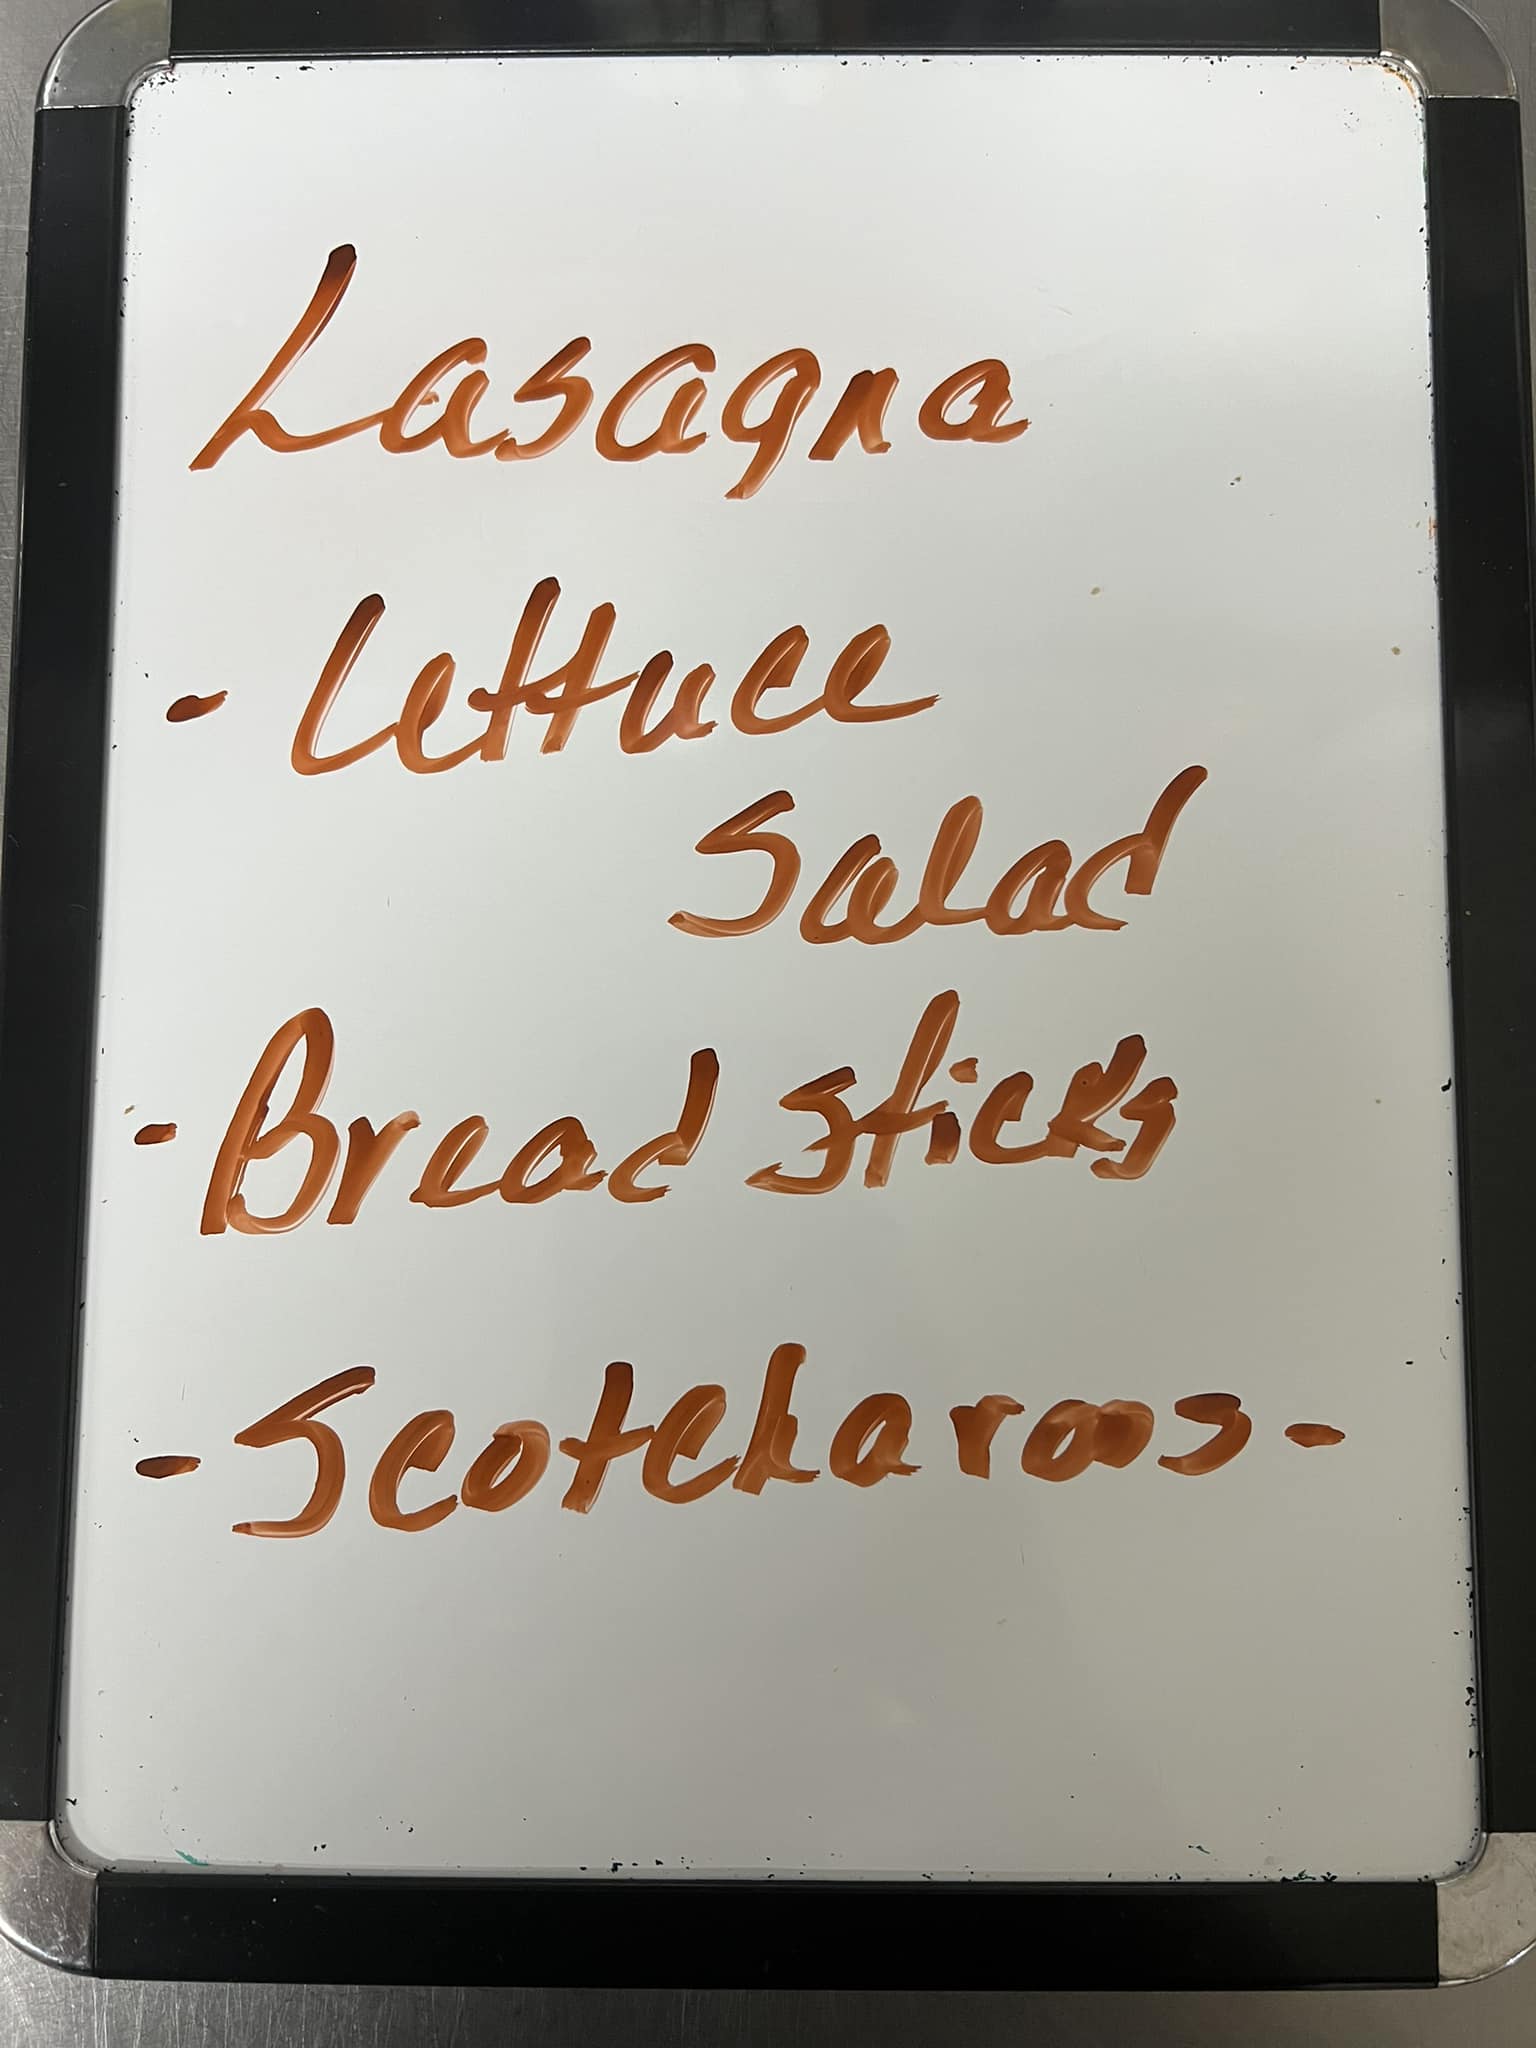 Lasagna
- Lettuce
Salad
- Bread sticks
- Scotcharoos -